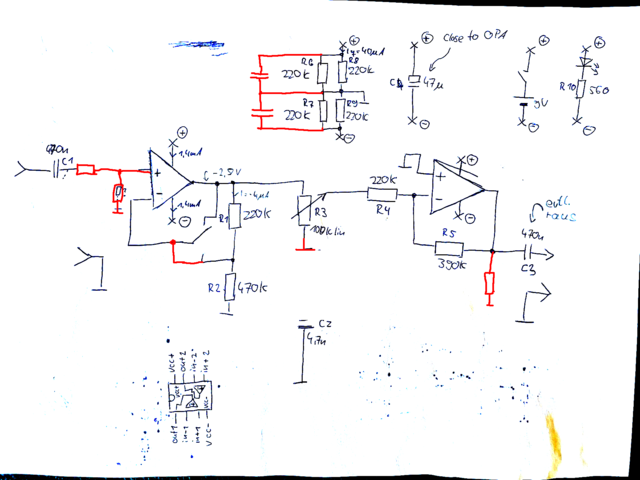 close to OPA
R6
220K
R8
220K
R7
220K
R9
220K
47µ
9V
R10
560
470n
C1
1,4mA
1,4mA
-2,5V
R1
220K
R2
470K
R3
100k lin
220K
R4
R5
390K
470n
C3
C2
4,7n
VCC+
out2
in-2
in+2
out1
in-1
in+1
VCC-